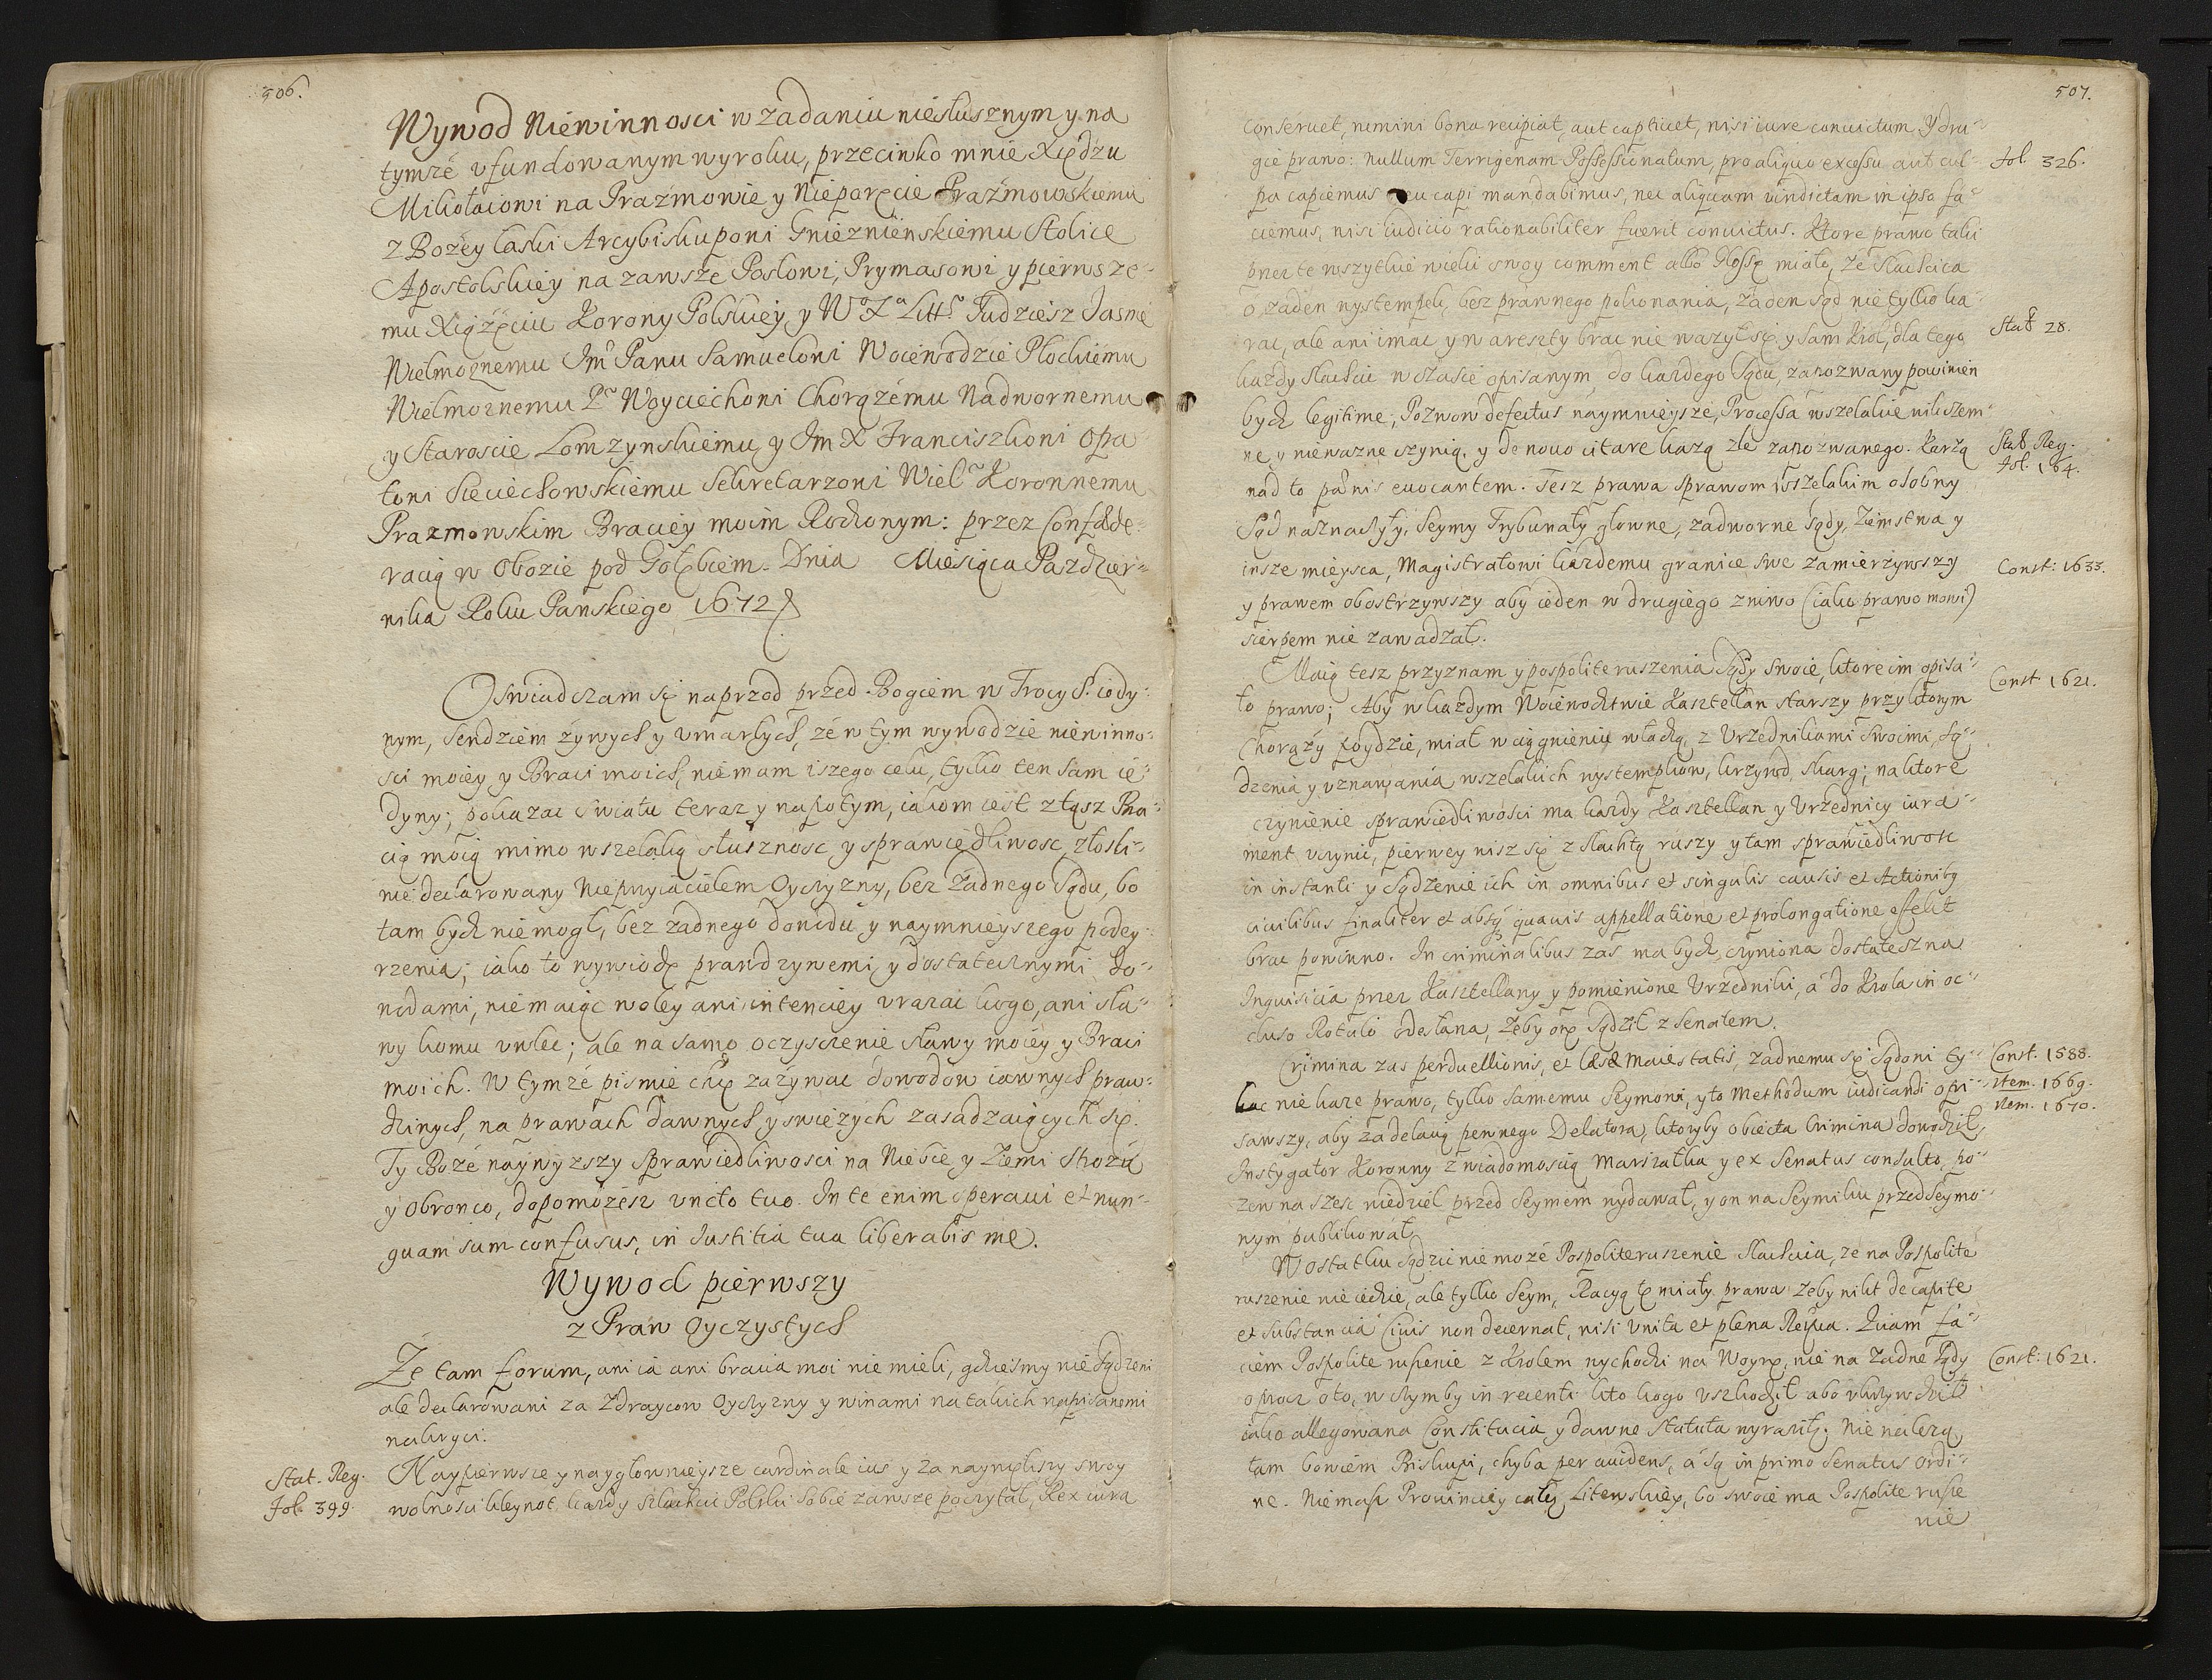 506.
Wywod Niewinnosci w zadaniu niesłusznym y na
tymże vfundowanym wyroku, przeciwko mnie Xiędzu
Mikołaiowi na Prażmowie y Nieporęcie Prażmowskiemu
z Bożey łaski Arcybiskupowi Gnieznienskiemu Stolice
Apostolskiey na zawsze Posłowi, Prymasowi y pierwsze-
mu Xiążęciu Korony Polskiey y W° X° Litt° Tudziesz Jasnie
Wielmoznemu Jm Panu Samuelowi Woiewodzie Płockiemu
Wielmoznemu P° Woyciechowi Chorążemu Nadwornemu
y Staroscie Łomzynskiemu, y Jm X Franciszkowi Opa-
towi Sieciechowskiemu Sekretarzowi Wiel° Koronnemu
Prazmowskim Braciey moim Rodzonym: przez Confæde-
racią w Obozie pod Gołębiem. Dnia Miesiąca Pazdzier-
nika Roku Panskiego 1672
Oswiadczam się naprzod przed Bogiem w Trocy S. iedy-
nym, Sendziem żywych y vmarłych, że w tym wywodzie niewinno-
sci moiey y Braci moich, nie mam iszego celu, tylko ten sam ie-
dyny; pokazac swiatu teraz y napotym, iakom iest z tąsz Bra-
cią moią mimo wszelaką słusznosc y sprawiedliwosc, złosli-
nie declarowany Nieprzyiacielem Oyczyzny, bez żadnego Sądu, bo
tam bydz niemogł, bez żadnego dowodu y naymnieyszego podey-
rzenia; iako to wywiodę prawdzywemi y dostatecznymi Do-
wodami, niemaiąc woley ani intenciey vrazac kogo, ani sła-
wy komu vwlec; ale na samo oczyszczenie sławy moiey y Braci
moich. W tymże pismie chcę zażywac dowodow iawnych praw-
dziwych, na prawach dawnych y swieżych zasadzaiących się.
Ty Boże naywyzszy Sprawiedliwosci na Niebie y Ziemi Strozu
y Obronco, dopomożesz vncto tuo. In te enim speraui et nun-
quam sum confusus, in Iustitia tua liberabis me.
Wywod pierwszy
z Praw Oyczystych
Że tam forum, ani ia ani bracia moi nie mieli, gdziesmy nie sądzeni
ale declarowani za Zdraycow Oyczyzny y winami na takich napisanemi
nakryci.
Stat. Reg. Naypierwsze y naygłownieysze cardinale ius y za naywiększy swoy
Fol. 399. wolnosci kleynot, kazdy szlachcic Polski sobie zawsze poczytał, Rex iura
507.
conseruet, nemini bona recipiat, aut captiuet, nisi iure conuictum. Y dru-
gie prawo: nullum Terrigenam Possessionatum, pro aliquo excessu aut cul- fol. 326.
pa capiemus seu capi mandabimus, nec aliquam vindictam in ipso fa-
ciemus, nisi iudicio rationabiliter fuerit conuictus. Ktore prawo taki
przez te wszytkie wieki swoy comment albo Glossę miało, że szlachcica
o żaden wystempek, bez prawnego pokonania, żaden sąd nie tylko ka-
rac, ale ani imac y w areszty brac nie ważył się y sam Krol, dla tego Stat 28.
każdy szlachcic w czasie opisanym, do kazdego Sądu, zapozwany powinien
bydz legitime; Pozwow defectus naymnieysze, Processa wszelakie nikczem-
ne y niewazne czynią, y de nouo citare każą zle zapozwanego. Karżą Stat Reg.
Fol. 164.
nad to pœnis euocantem. Tesz prawa sprawom wszelakim osobny
Sąd naznaczyły, Seymy Trybunały głowne, zadworne sądy, Ziemstwa y
insze mieysca, Magistratowi każdemu granice swe zamierzywszy Const: 1633.
y prawem obostrzywszy aby ieden w drugiego zniwo (iako prawo mowi)
sierpem nie zawadzał.
Maią tesz przyznam y pospolite ruszenia Sądy swoie, ktore im opisa-
ło prawo; Aby w kazdym Woiewodztwie Kasztellan starszy przy ktorym Const 1621.
Chorąży poydzie, miał w ciągnieniu władzą z Vrzednikami swoimi, są-
dzenia y vznawania wszelakich wystempkow, krzywd, skarg; na ktore
czynienie sprawiedliwosci ma kazdy Kasztellan y Vrzednicy iura-
ment vczynic, pierwey nisz się z szlachtą ruszy y tam sprawiedliwosc
in instanti y sądzenie ich in omnibus et singulis causis et Actionibus
ciuilibus finaliter et absque quauis appellatione et prolongatione effekt
brac powinno. In criminalibus zas ma bydz czyniona dostateszna
Inquisicia przez Kasztellany y pomienione Vrzedniki, a do Krola in oc-
cluso Rotulo odesłana, żeby on sądził z Senatem.
Crimina zas perduellionis, et læsæ Maiestatis, żadnemu się Sądowi ty- Const. 1588.
kac nie kaze prawo, tylko samemu Seymowi, y to Methodum iudicandi opi- Item. 1669.
Item. 1670.
sawszy, aby za delacią pewnego Delatora, ktoryby obiecta crimina dowodził,
Instygator Koronny z wiadomoscią Marszałka y ex Senatus consulto, po-
zew na szesc niedziel przed Seymem wydawał, y on na Seymiku przed Seymo-
wym publikował.
W ostatku sądzic nie może Pospolite ruszenie szlachcica, że na Pospolite
ruszenie nie iedzie, ale tylko Seym, Racyą tę miały prawa żeby nikt de capite
et substancia Ciuis non decernat, nisi vnita et plena Reipublica. Quam fa-
ciem Pospolite rusienie z Krolem wychodzi na Woynę, nie na żadne Sądy Const: 1621.
oprocz oto, w czymby in recenti kto kogo vszkodził abo vkrzywdził
iako allegowana Constitucia y dawne Statuta wyraziły. Nie należą
tam bowiem Biskupi, chyba per accidens, a są in primo Senatus Ordi-
ne. Niemasz Prouinciey całey Litewskiey, bo swoie ma Pospolite rusie
nie